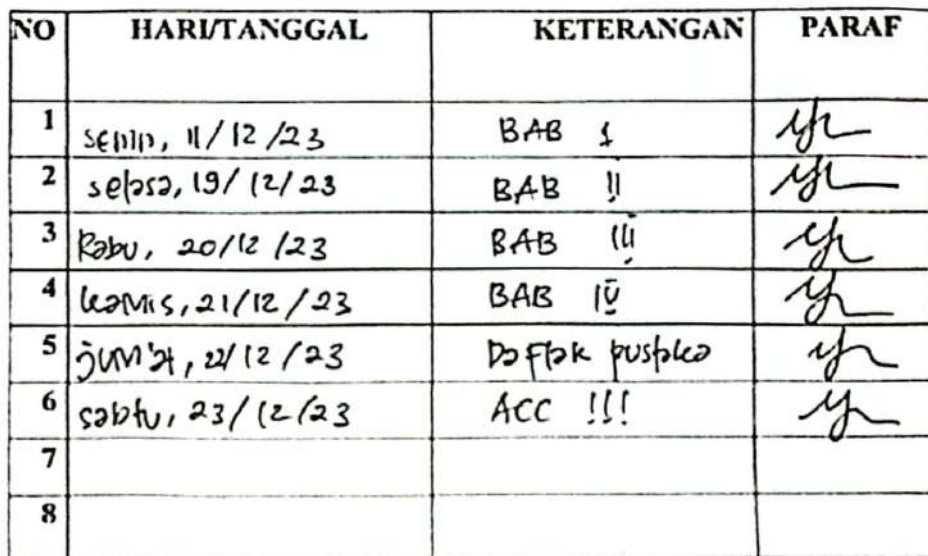 NO HARI/TANGGAL KETERANGAN PARAF
1 senin, 11/12/23 BAB I
2 selasa, 19/12/23 BAB II
3 Rabu, 20/12/23 BAB III
4 kamis, 21/12/23 BAB IV
5 jum'at, 22/12/23 Daftak pustaka
6 sabtu, 23/12/23 ACC !!!
7
8